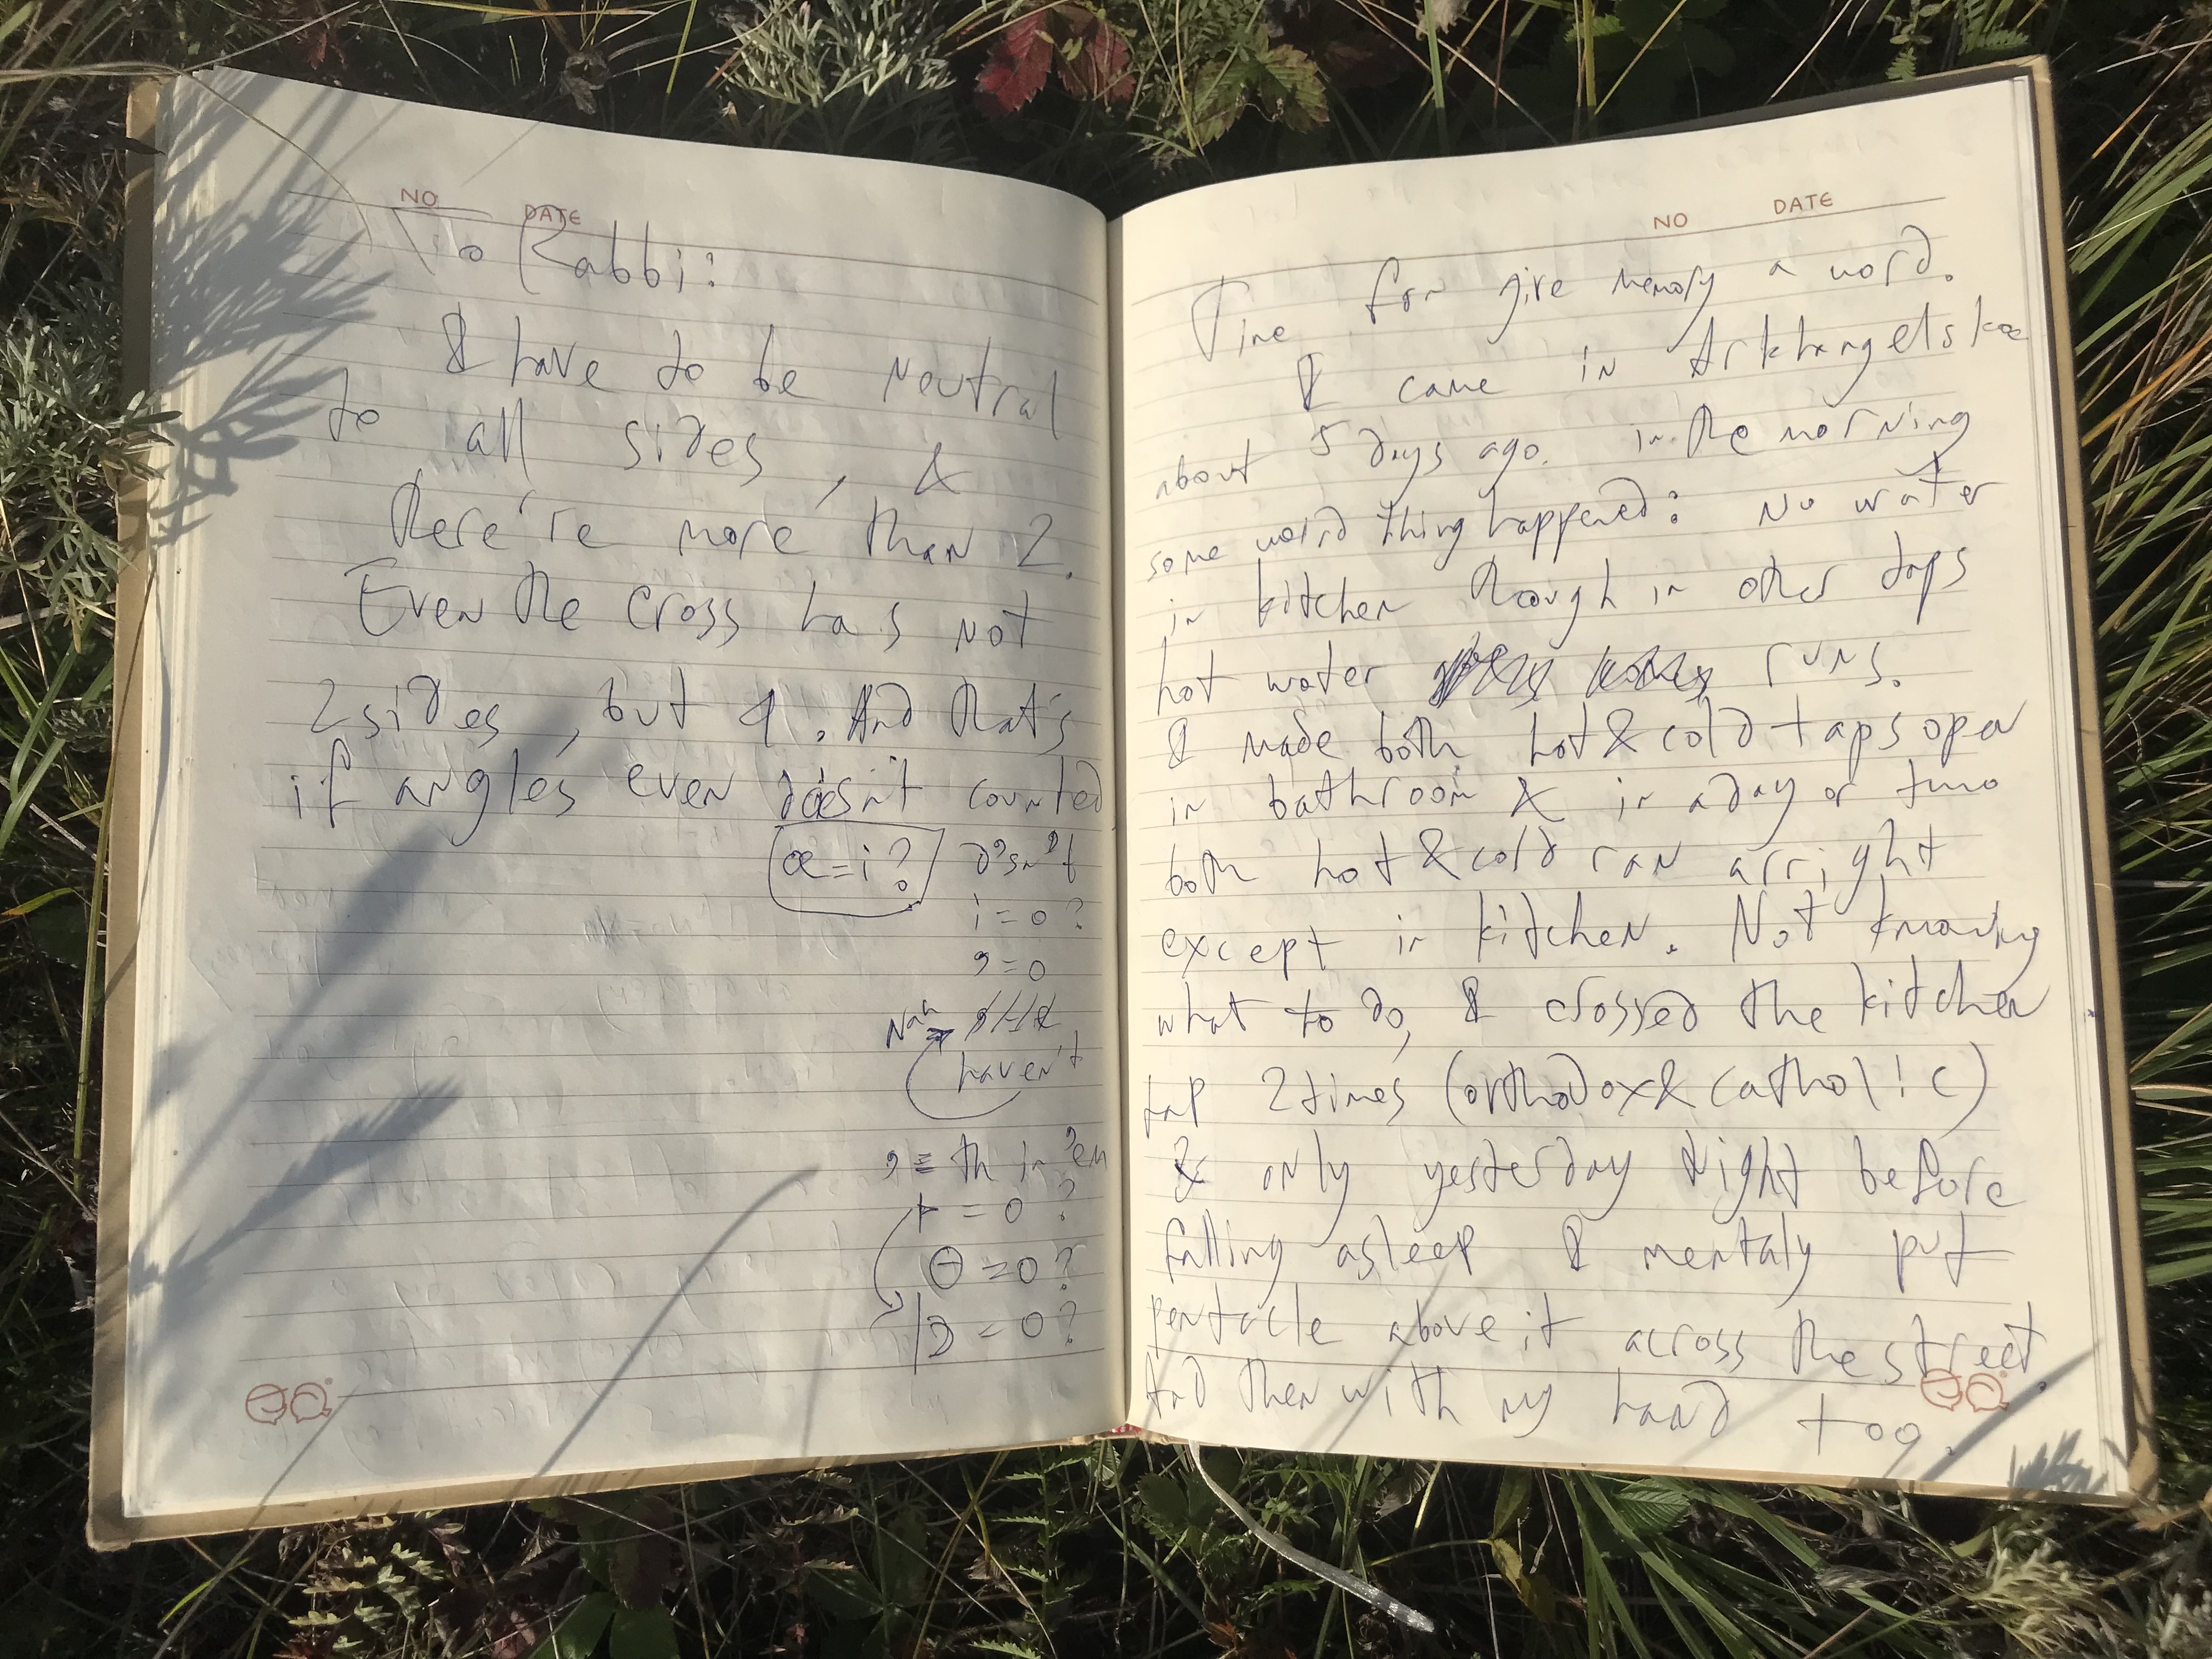 NO DATE
To Rabbi:
I have to be neutral
to all sides, &
there're more than 2.
Even the cross has not
2 sides, but 4. And that's
if angles even doesn't counted
æ=i?
i=0?
g=0
haven't
=0?
Θ=0?
D=0?
NO DATE
Time for give nenoty a word.
I came in Arkhangelskæ
about 5 days ago. in the morning
some weird thing happened: No water
in kitchen though in other days
hot water runs.
I made both hot & cold taps open
in bathroom & in a day or two
both hot & cold ran arright
except in kitchen. Not knowing
what to do I crossed the kitchen
tap 2 times (orthodox & catholic)
& only yesterday night before
falling asleep I mentaly put
pentacle above it across the street
And then with my hand too.